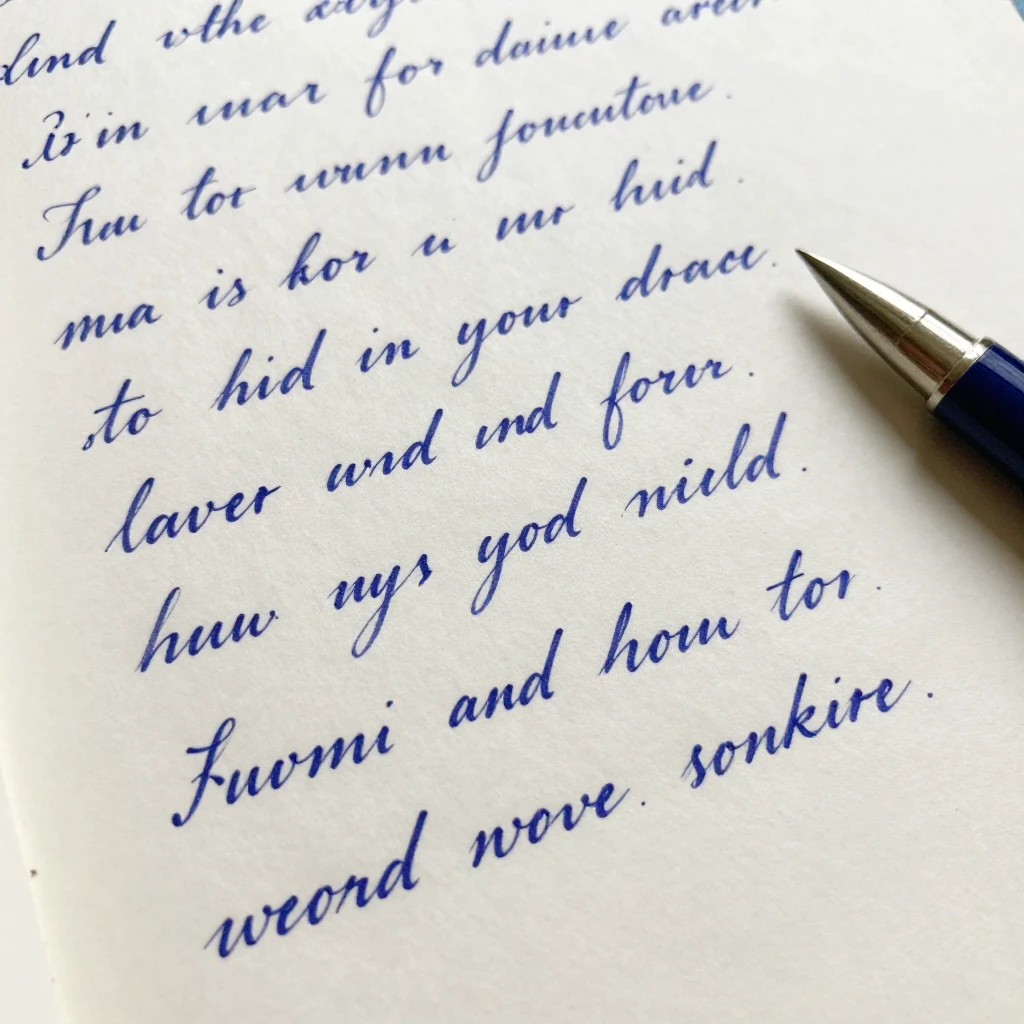 dind vthe
in mar for daiue
Truu tor wunu foucutoue.
mua is kor u mr huid.
to hid in your drace.
laver wrd ind forur.
huw nys yod nield.
Fuvomi and hom tor.
weord wove. sonkire.